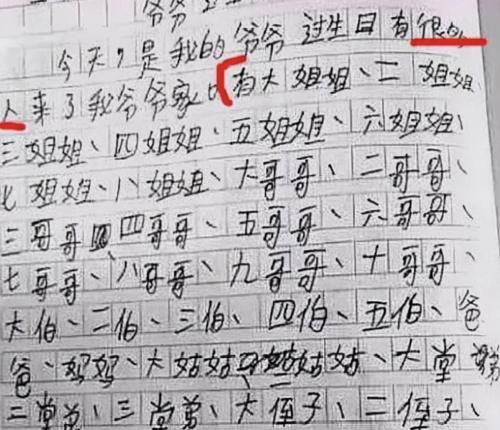 爷爷
今天,是我的爷爷过生日有很多
人来了我爷爷家。有大姐姐、二姐姐、
三姐姐、四姐姐、五姐姐、六姐姐、
七姐姐、八姐姐、大哥哥、二哥哥、
三哥哥、四哥哥、五哥哥、六哥哥、
七哥哥、八哥哥、九哥哥、十哥哥、
大伯、二伯、三伯、四伯、五伯、爸
爸、妈妈、大姑姑、姑姑、大堂弟
二堂弟、三堂弟、大侄子、二侄子、